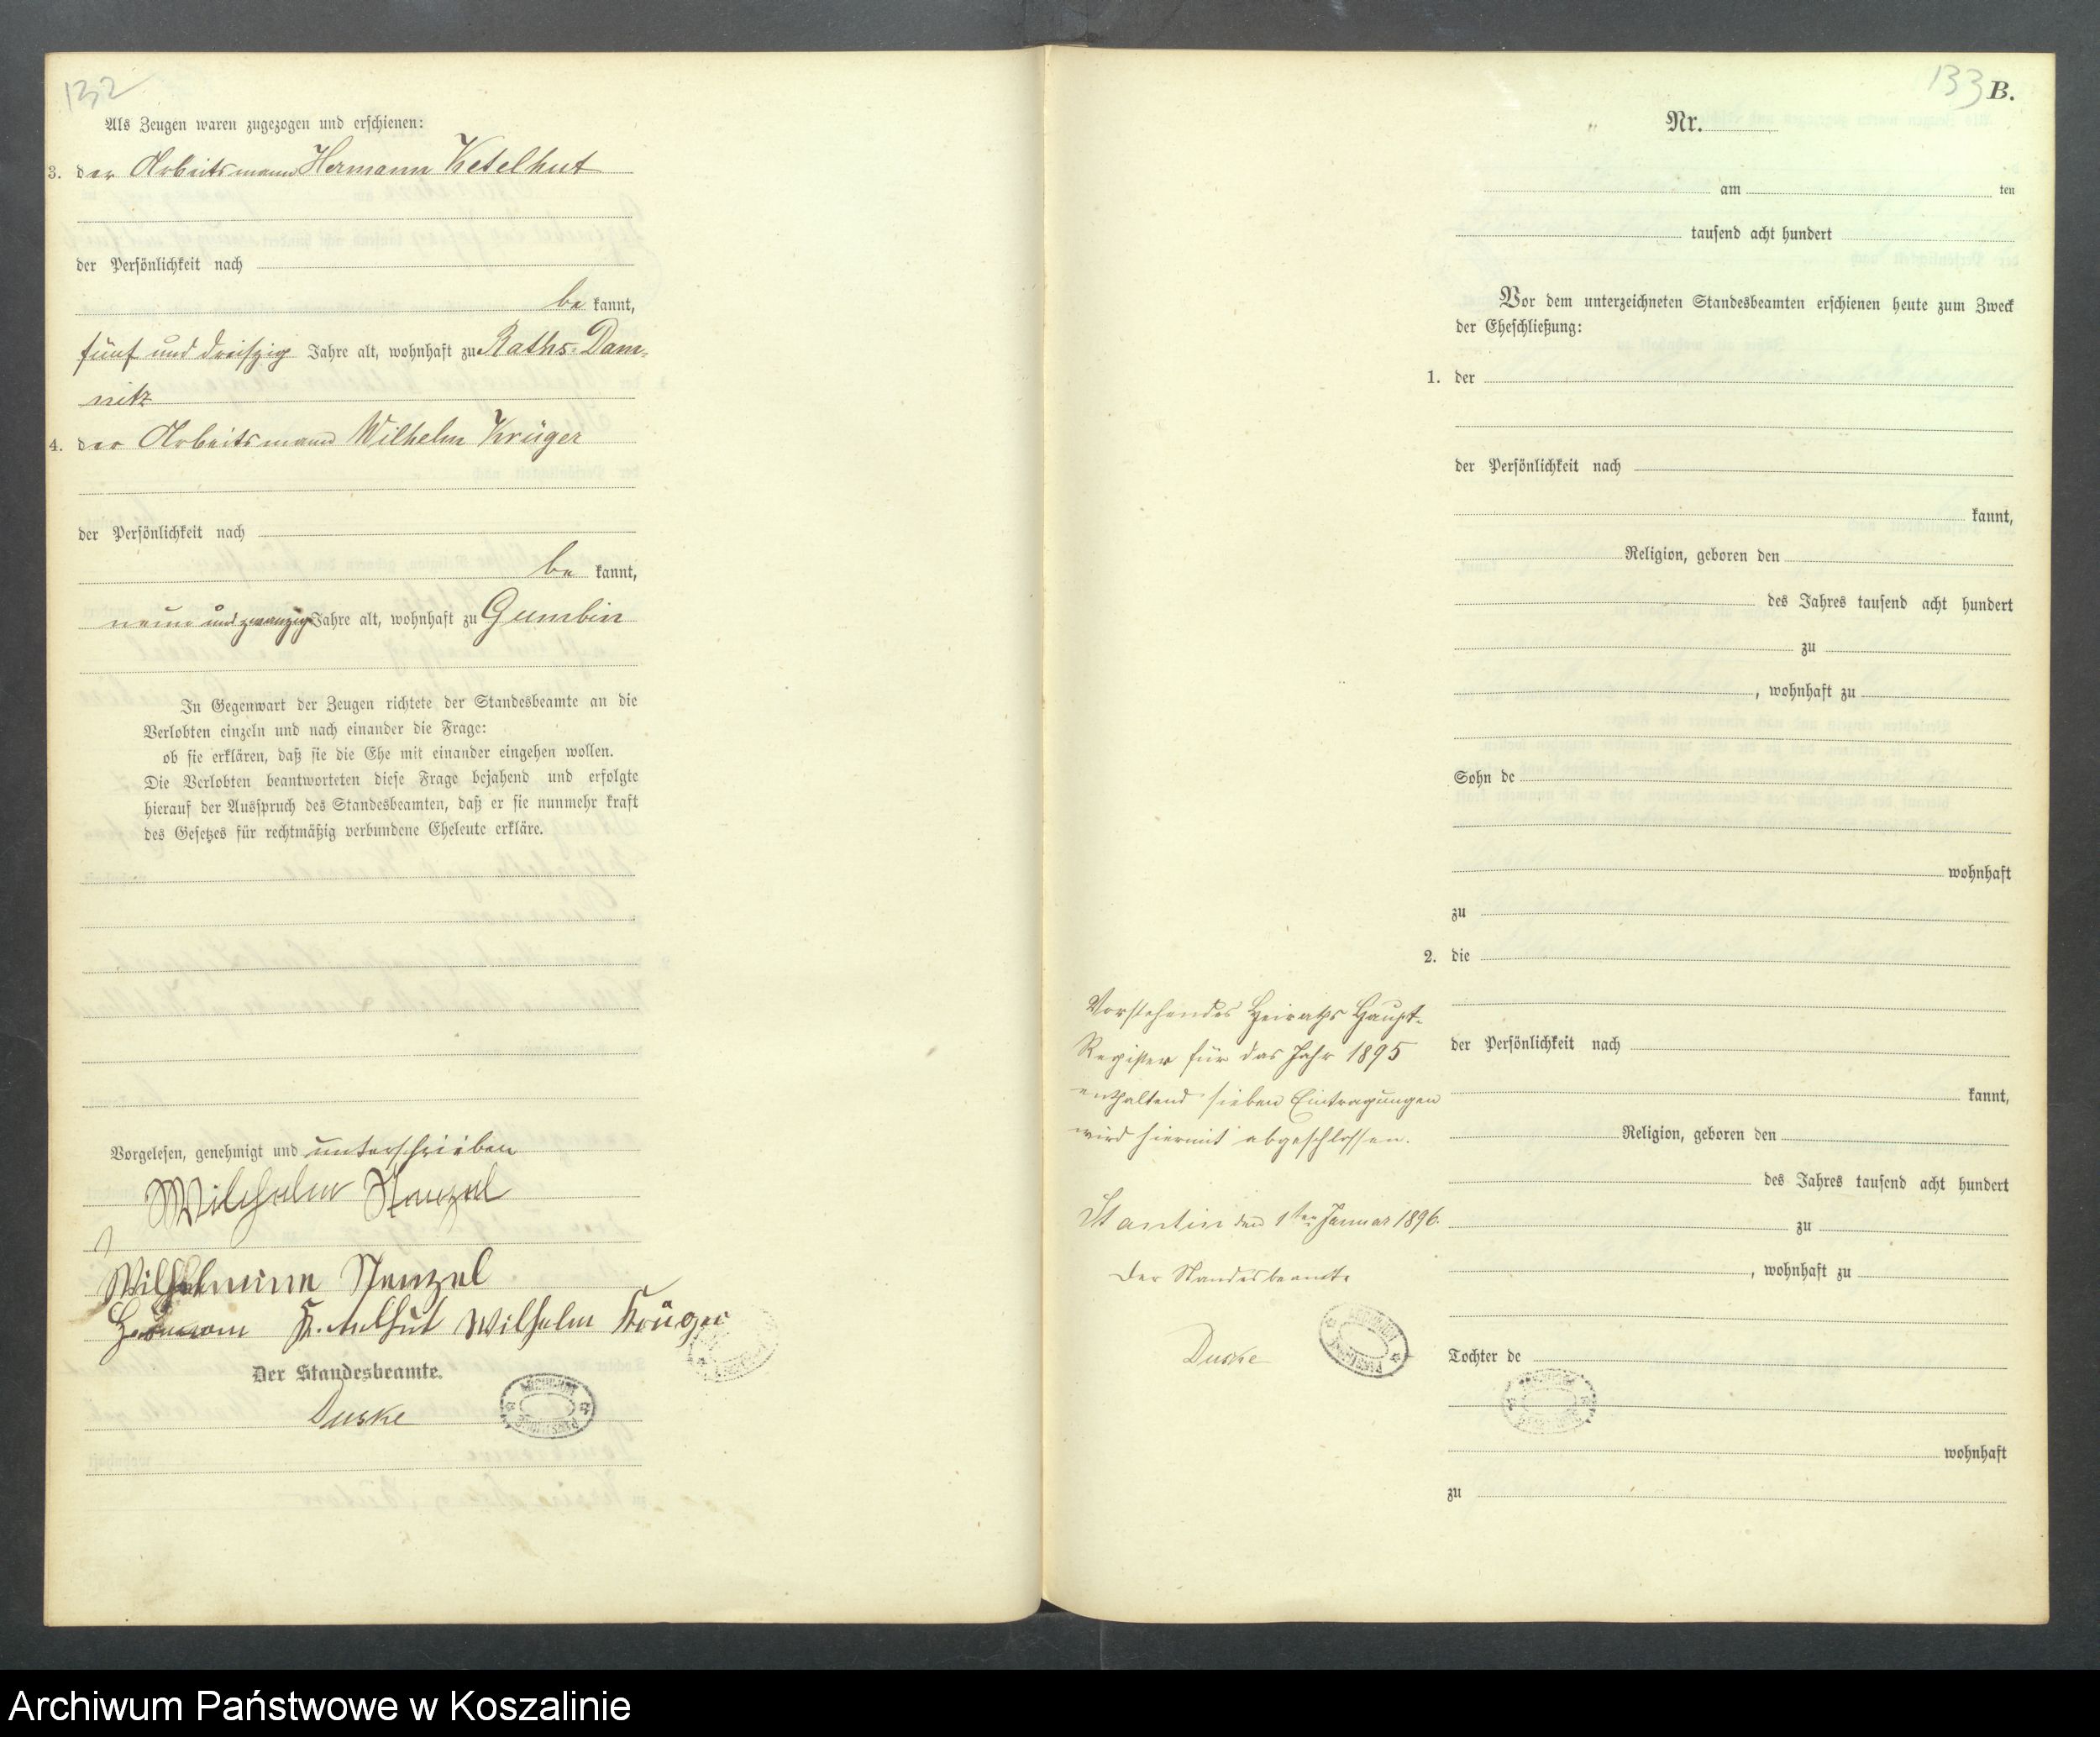 132
Als Zeugen waren zugezogen und erschienen:
3. der Arbeitsmann Hermann Ketelhut
der Persönlichkeit nach
be kannt,
fünf und dreißzig Jahre alt, wohnhaft zu Raths-Dam-
nitz
4. der Arbeitsmann Wilhelm Krüger
der Persönlichkeit nach
be kannt,
neun und zwanzig Jahre alt, wohnhaft zu Gumbin
In Gegenwart der Zeugen richtete der Standesbeamte an die
Verlobten einzeln und nach einander die Frage:
ob sie erklären, daß sie die Ehe mit einander eingehen wollen.
Die Verlobten beantworteten diese Frage bejahend und erfolgte
hierauf der Ausspruch des Standesbeamten, daß er sie nunmehr kraft
des Gesetzes für rechtmäßig verbundene Eheleute erkläre.
Vorgelesen, genehmigt und unterschrieben
Wilhelm
Wilhelmine
Hermann Ketelhut Wilhelm Krüger
Der Standesbeamte.
Duske
133 B.
Nr.
am ten
tausend acht hundert
Vor dem unterzeichneten Standesbeamten erschienen heute zum Zweck
der Eheschließung:
1. der
der Persönlichkeit nach
kannt,
Religion, geboren den
des Jahres tausend acht hundert
zu
, wohnhaft zu
Sohn de
wohnhaft
zu
2. die
der Persönlichkeit nach
kannt,
Religion, geboren den
des Jahres tausend acht hundert
zu
, wohnhaft zu
Tochter de
wohnhaft
zu
Vorstehendes Heiraths Haupt-
Register für das Jahr 1895
enthaltend sieben Eintragungen
wird hiermit abgeschlossen.
Stantin den 1ten Januar 1896.
Der Standesbeamte
Duske
Archiwum Państwowe w Koszalinie